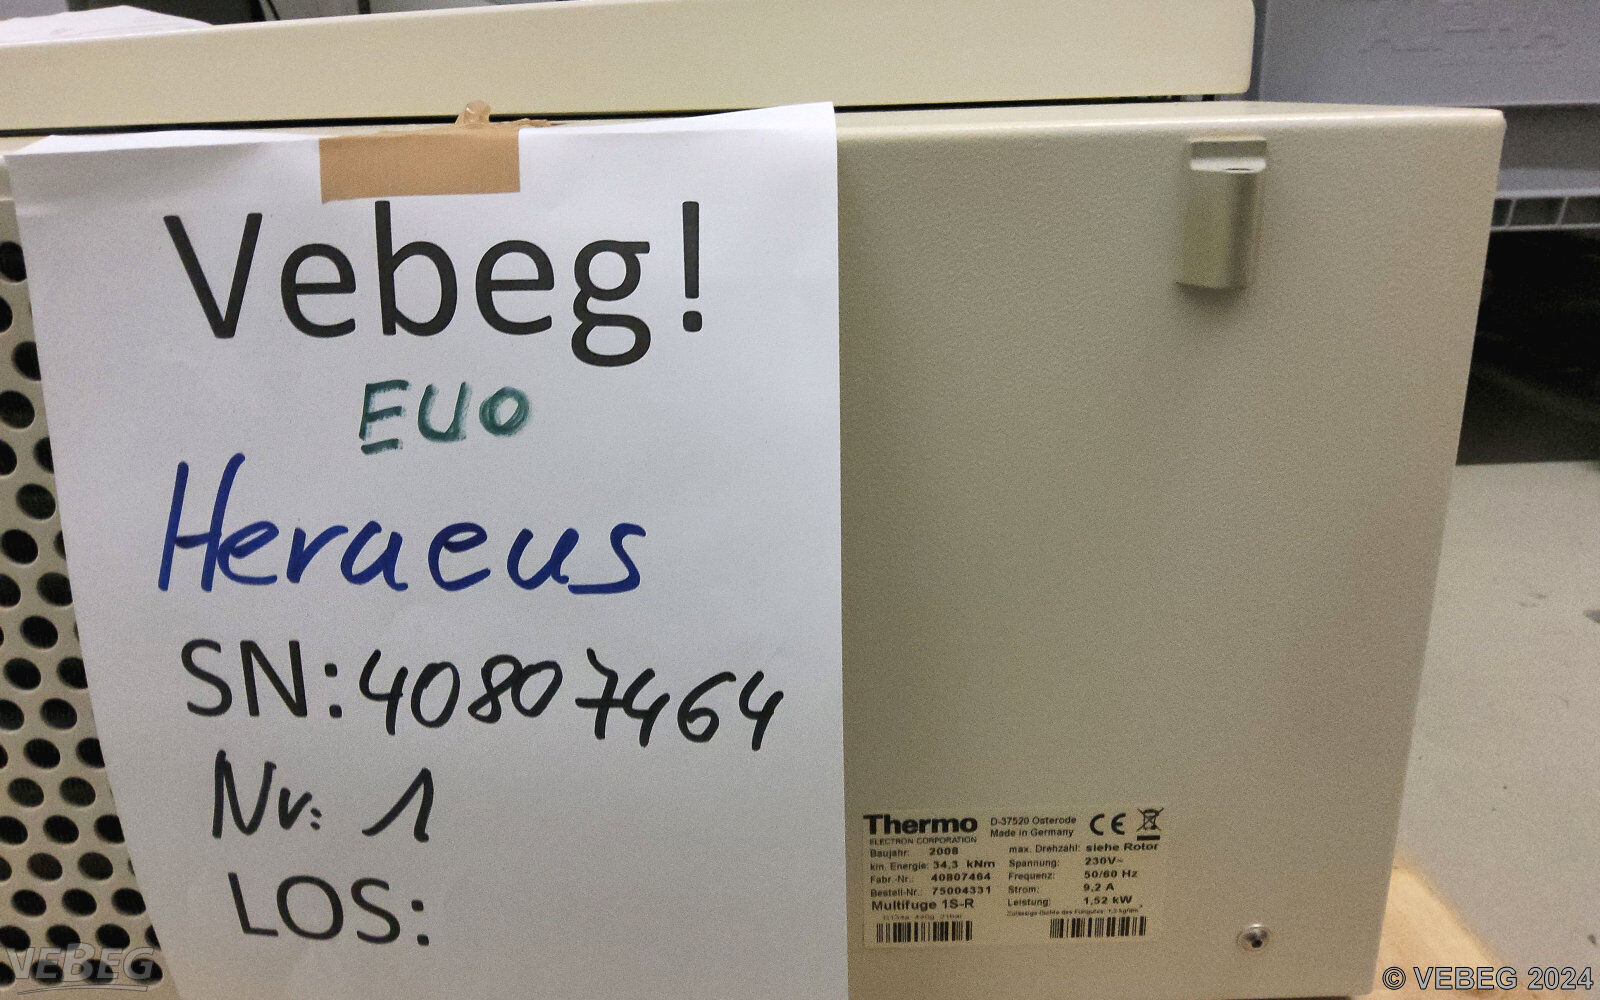 Vebeg!
EUO
Heraeus
SN: 40807464
Nr: 1
LOS:
Thermo
ELECTRON CORPORATION
D-37520 Osterode
Made in Germany
CE
Baujahr: 2008
kin. Energie: 34,3 kNm
Fabr.-Nr.: 40807464
Bestell-Nr.: 75004331
Multifuge 1S-R
max. Drehzahl: siehe Rotor
Spannung: 230V~
Frequenz: 50/60 Hz
Strom: 9,2 A
Leistung: 1,52 kW
VEBEG
© VEBEG 2024